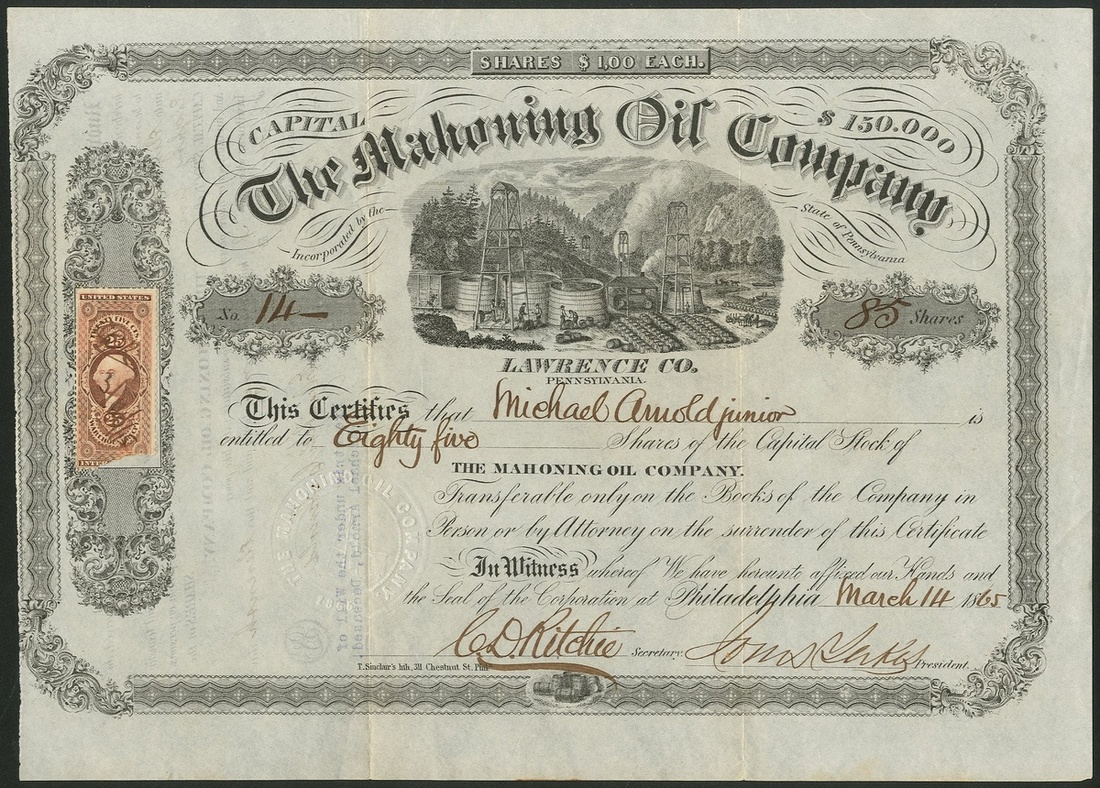 SHARES $1,00 EACH.
CAPITAL $150.000
The Mahoning Oil Company
Incorporated by the State of Pennsylvania
No. 14 85 Shares
LAWRENCE CO.
PENNSYLVANIA.
This Certifies that Michael Arnold junior is
entitled to Eighty five Shares of the Capital Stock of
THE MAHONING OIL COMPANY.
Transferable only on the Books of the Company in
Person or by Attorney on the surrender of this Certificate
In Witness whereof We have hereunto affixed our Hands and
the Seal of the Corporation at Philadelphia March 14 1865
C. D. Ritchie Secretary. President.
T. Sinclair's lith, 311 Chestnut St. Phil
UNITED STATES
25
THE MAHONING OIL COMPANY